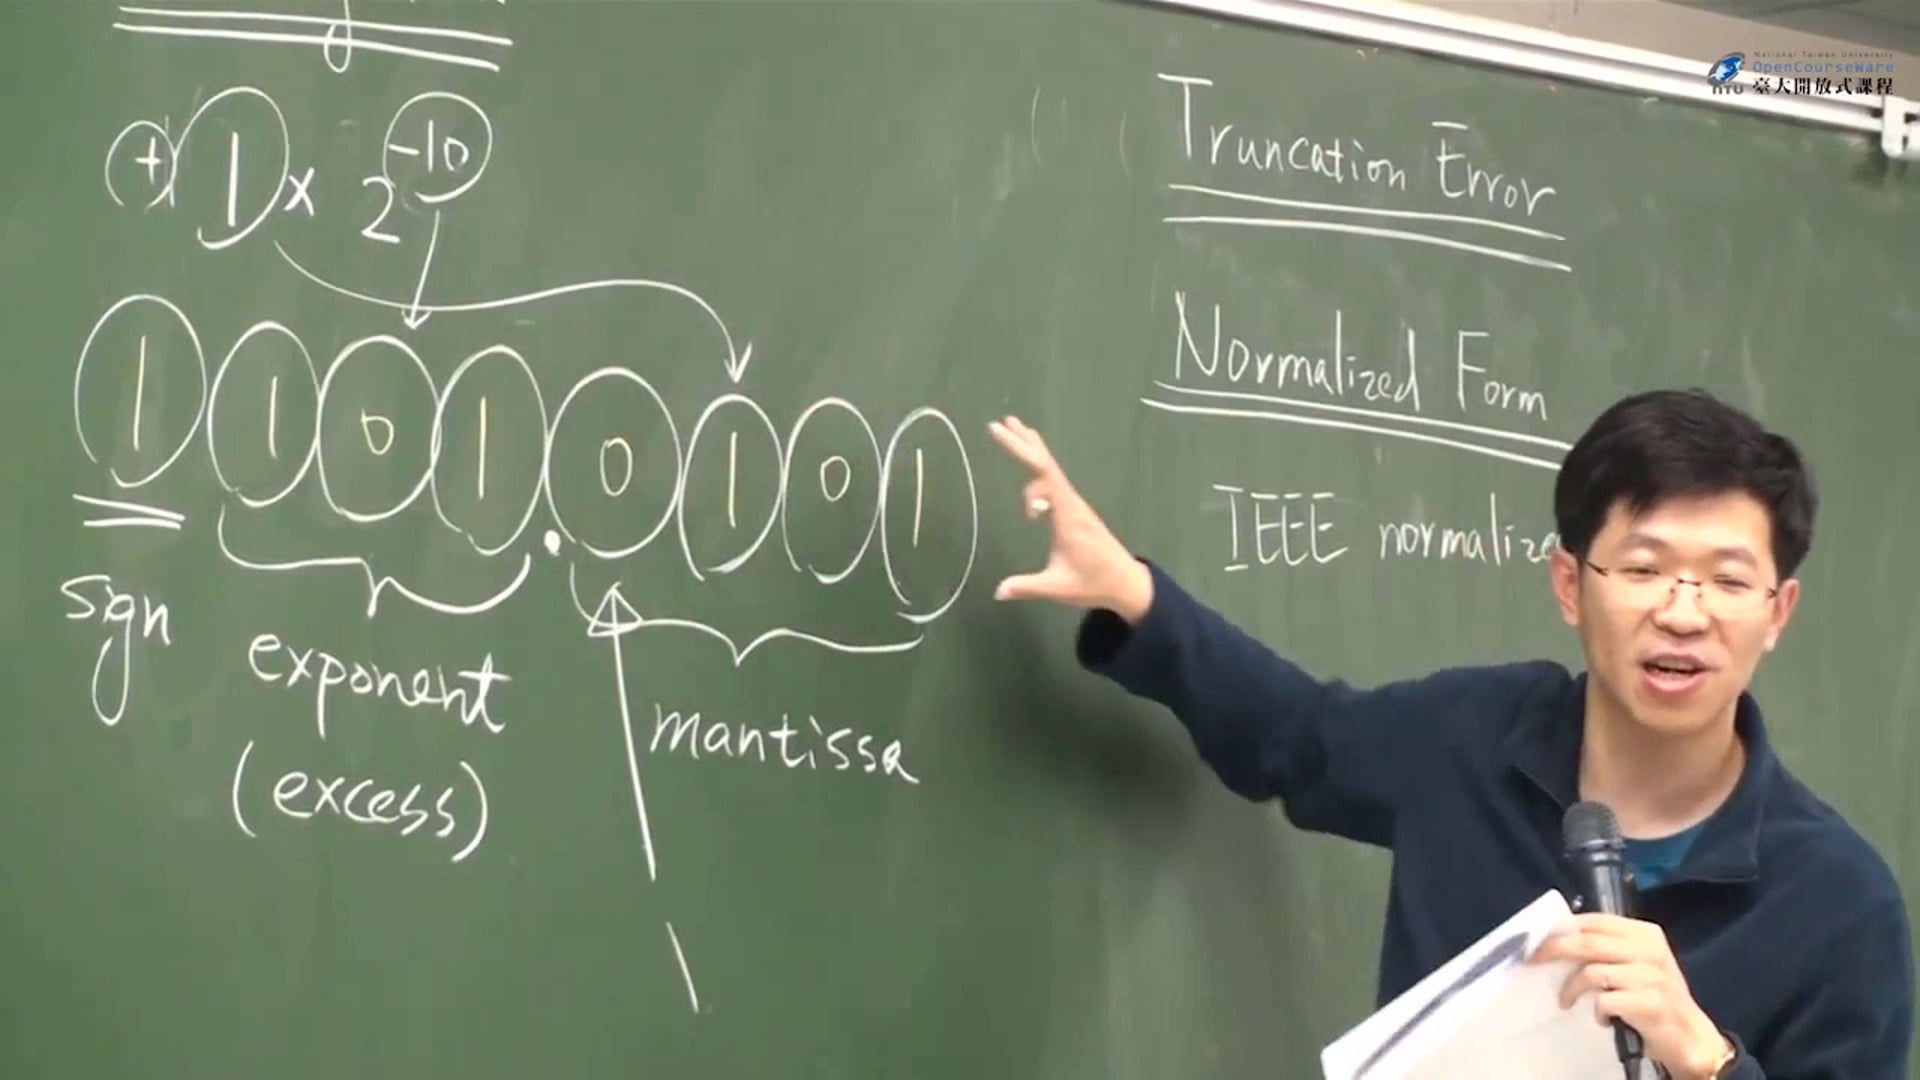 + 1 x 2 -10
1 1 0 1 . 0 1 0 1
sign
exponent
(excess)
mantissa
Truncation Error
Normalized Form
IEEE normalize
National Taiwan University
OpenCourseWare
NTU 臺大開放式課程